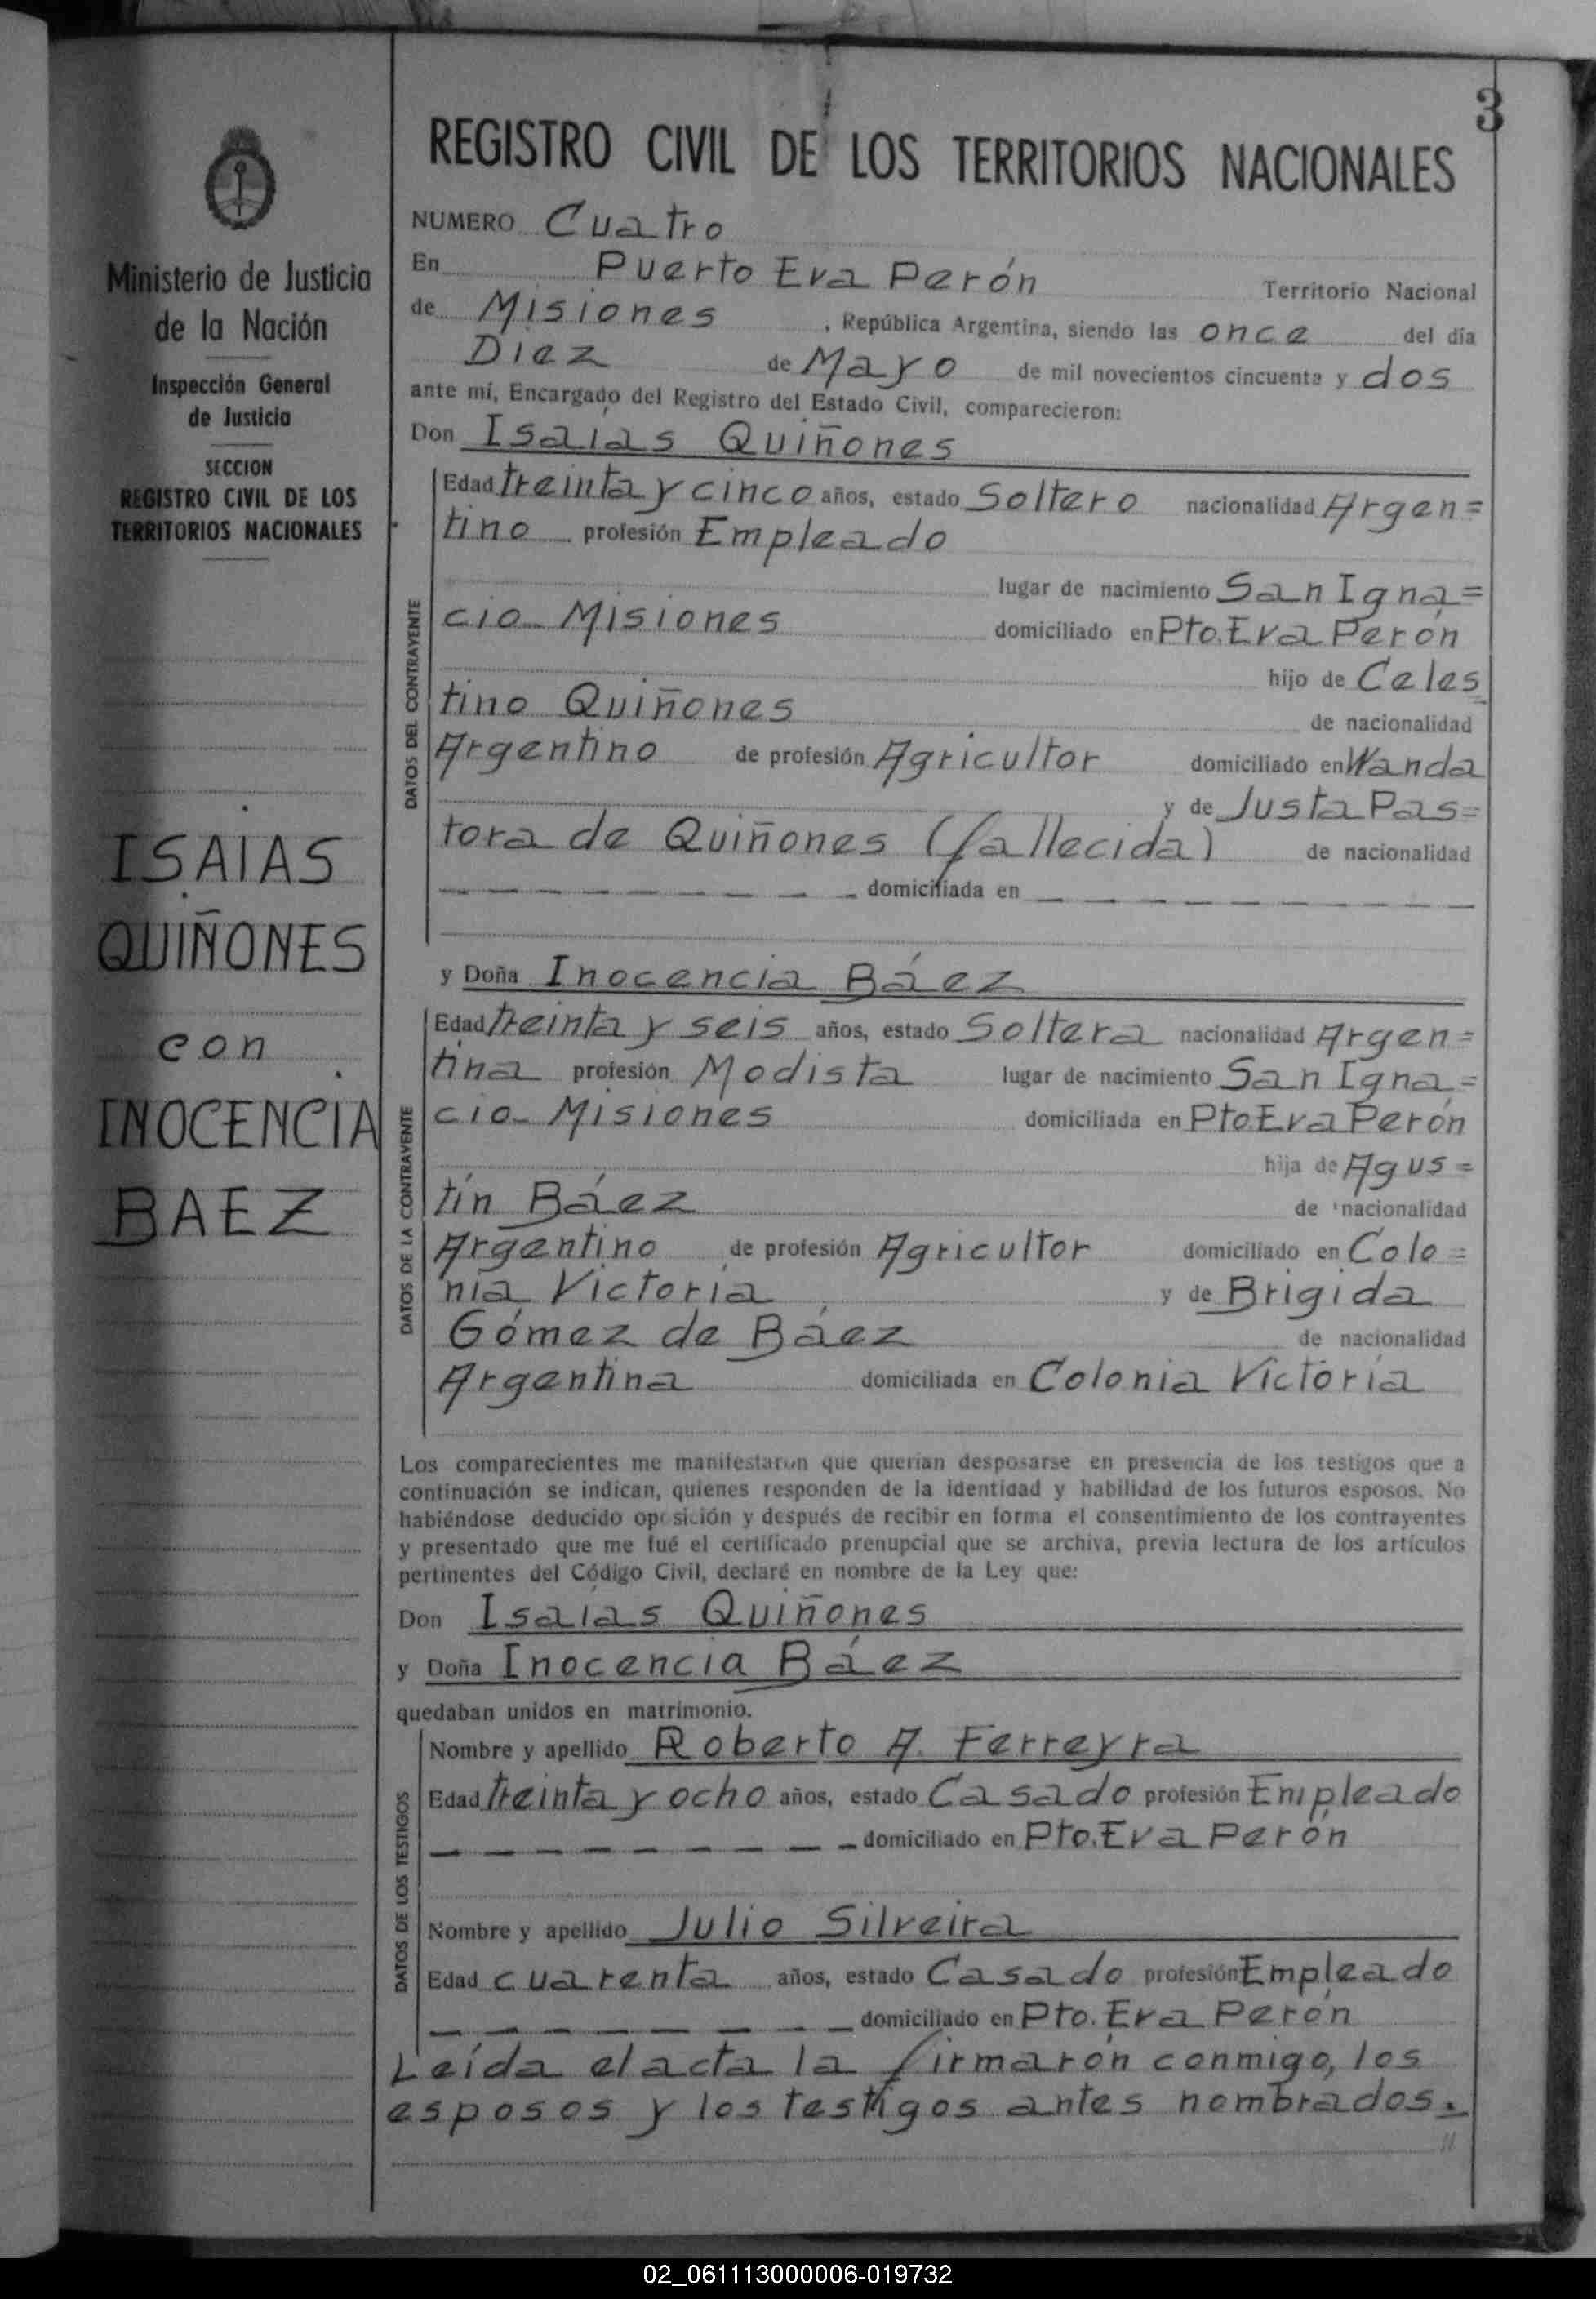 3
Ministerio de Justicia
de la Nación
Inspección General
de Justicia
SECCION
REGISTRO CIVIL DE LOS
TERRITORIOS NACIONALES
ISAIAS
QUIÑONES
con
INOCENCIA
BAEZ
REGISTRO CIVIL DE LOS TERRITORIOS NACIONALES
NUMERO Cuatro
En Puerto Eva Perón Territorio Nacional
de Misiones, República Argentina, siendo las once del día
Diez de Mayo de mil novecientos cincuenta y dos
ante mí, Encargado del Registro del Estado Civil, comparecieron:
Don Isaías Quiñones
DATOS DEL CONTRAYENTE
Edad treinta y cinco años, estado Soltero nacionalidad Argen=
tino profesión Empleado
lugar de nacimiento San Igna=
cio Misiones domiciliado en Pto. Eva Perón
hijo de Celes
tino Quiñones de nacionalidad
Argentino de profesión Agricultor domiciliado en Wanda
y de Justa Pas=
tora de Quiñones (fallecida) de nacionalidad
domiciliada en
y Doña Inocencia Báez
DATOS DE LA CONTRAYENTE
Edad treinta y seis años, estado Soltera nacionalidad Argen=
tina profesión Modista lugar de nacimiento San Igna=
cio- Misiones domiciliada en Pto Eva Perón
hija de Agus=
tín Báez de nacionalidad
Argentino de profesión Agricultor domiciliado en Colo=
nia Victoria y de Brigida
Gómez de Báez de nacionalidad
Argentina domiciliada en Colonia Victoria
Los comparecientes me manifestaron que querían desposarse en presencia de los testigos que a
continuación se indican, quienes responden de la identidad y habilidad de los futuros esposos. No
habiéndose deducido oposición y después de recibir en forma el consentimiento de los contrayentes
y presentado que me fué el certificado prenupcial que se archiva, previa lectura de los artículos
pertinentes del Código Civil, declaré en nombre de la Ley que:
Don Isaías Quiñones
y Doña Inocencia Báez
quedaban unidos en matrimonio.
DATOS DE LOS TESTIGOS
Nombre y apellido Roberto A. Ferreyra
Edad treinta y ocho años, estado Casado profesión Empleado
domiciliado en Pto. Eva Perón
Nombre y apellido Julio Silveira
Edad cuarenta años, estado Casado profesión Empleado
domiciliado en Pto. Eva Perón
Leída el acta la firmaron conmigo, los
esposos y los testigos antes nombrados.
02_061113000006-019732